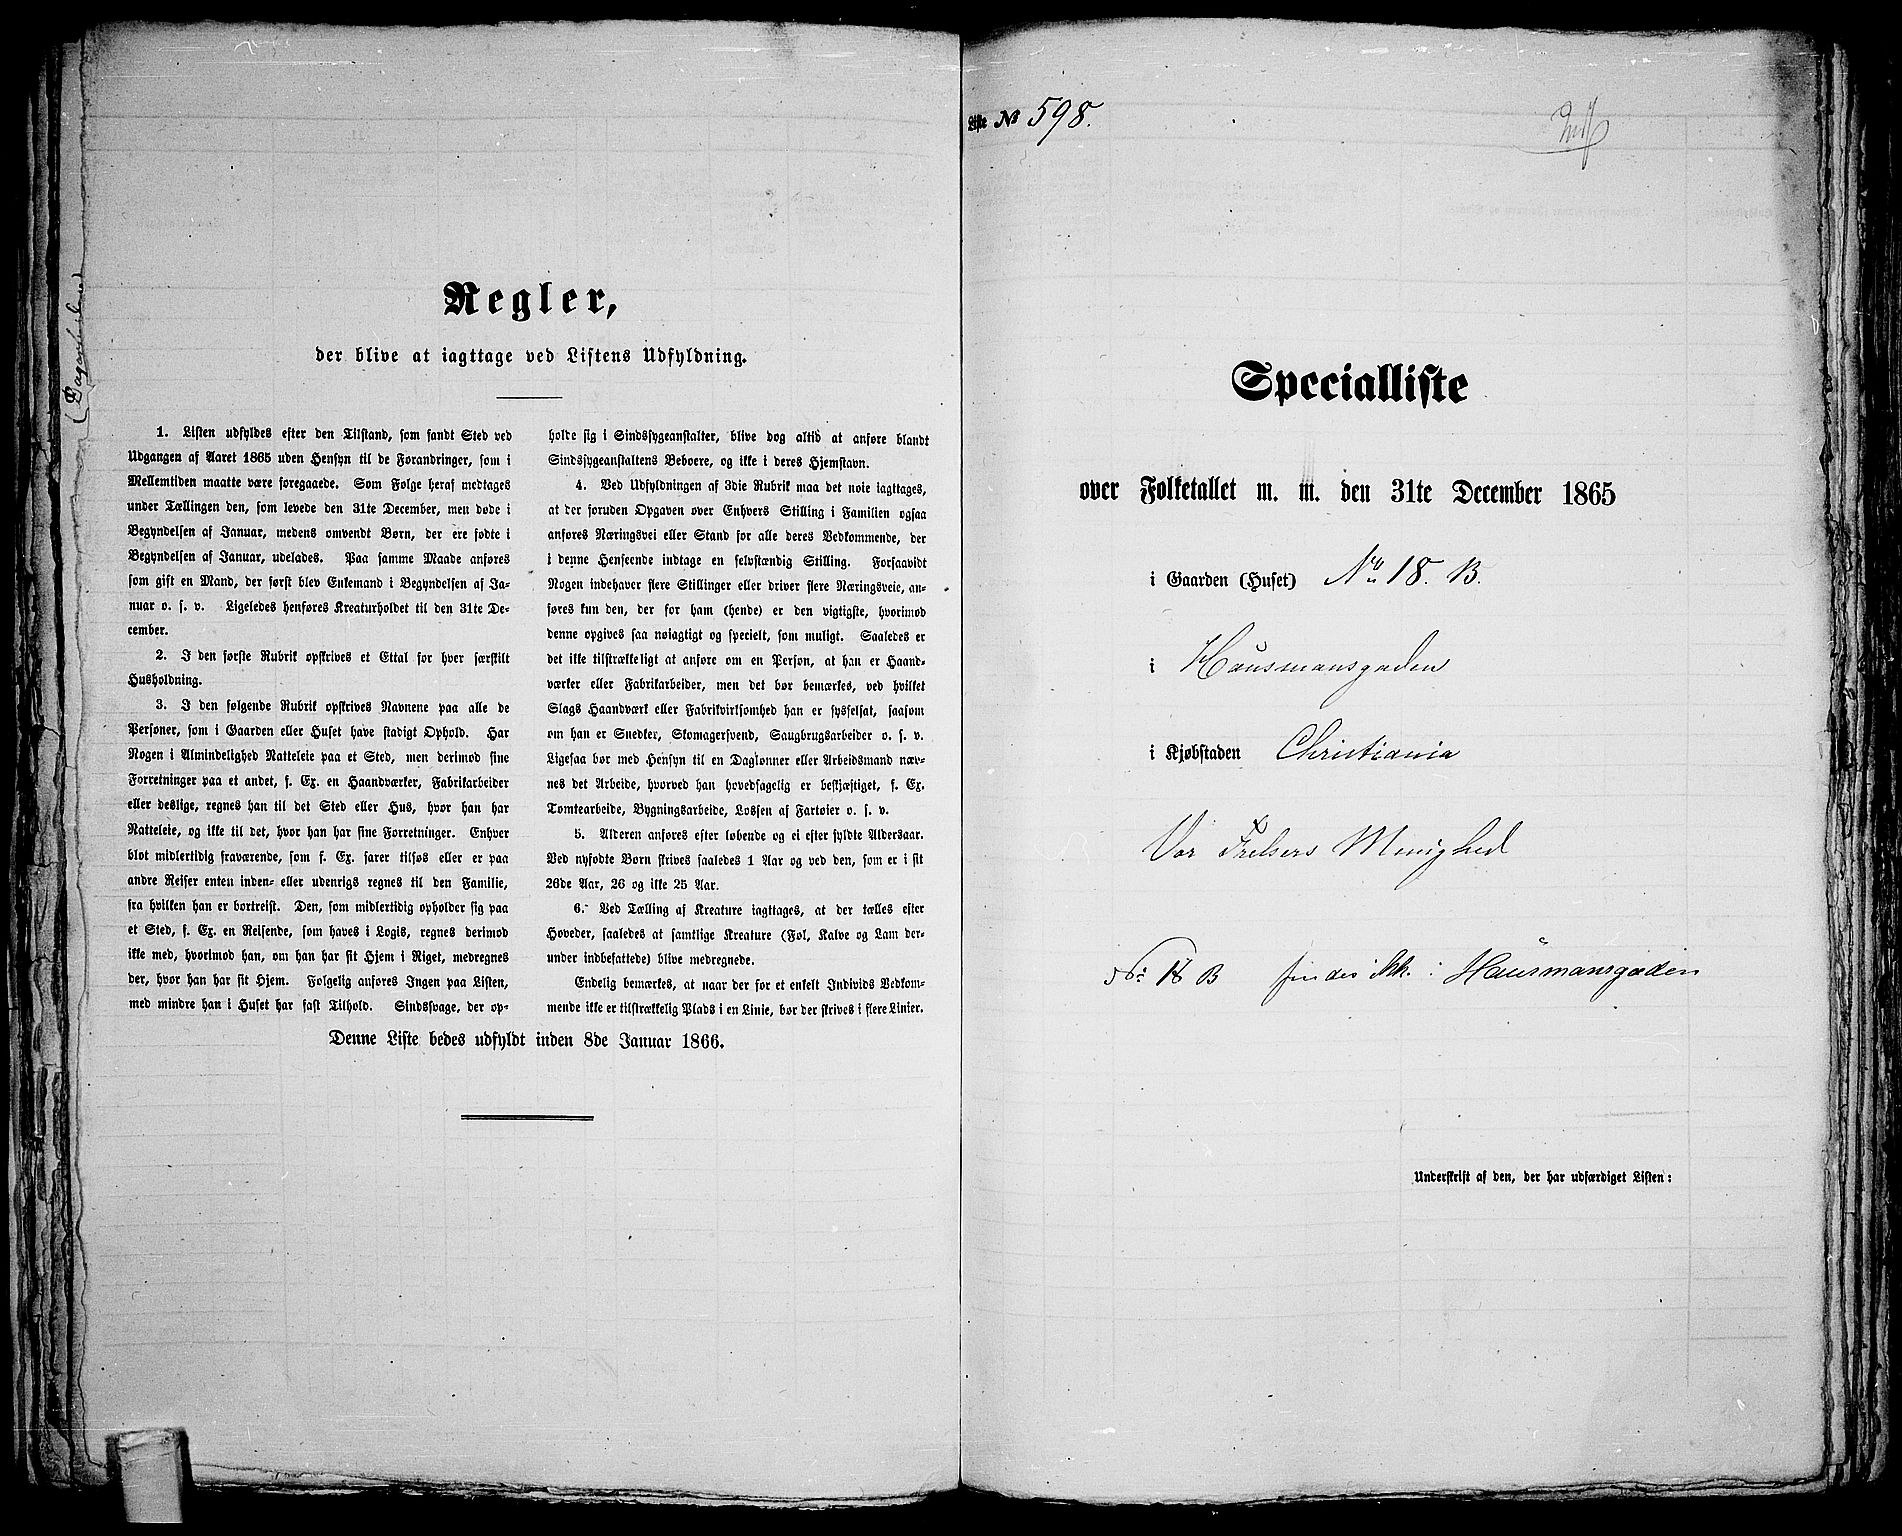 Regler,
der blive at iagttage ved Listens Udfyldning.
1. Listen udfyldes efter den Tilstand, som fandt Sted ved
Udgangen af Aaret 1865 uden Hensyn til de Forandringer, som i
Mellemtiden maatte være foregaaede. Som Følge heraf medtages
under Tællingen den, som levede den 31te December, men døde i
Begyndelsen af Januar, medens omvendt Børn, der ere fødte i
Begyndelsen af Januar, udelades. Paa samme Maade anføres
som gift en Mand, der først blev Enkemand i Begyndelsen af Ja-
nuar o. s. v. Ligeledes henføres Kreaturholdet til den 31te De-
cember.
2. I den første Rubrik opskrives et Ettal for hver særskilt
Husholdning.
3. I den følgende Rubrik opskrives Navnene paa alle de
Personer, som i Gaarden eller Huset have stadigt Ophold. Har
Nogen i Almindelighed Natteleie paa et Sted, men derimod sine
Forretninger paa et andet, f. Ex. en Haandværker, Fabrikarbeider
eller deslige, regnes han til det Sted eller Hus, hvor han har
Natteleie, og ikke til det, hvor han har sine Forretninger. Enhver
blot midlertidig fraværende, som f. Ex. farer tilsøs eller er paa
andre Reiser enten inden- eller udenrigs regnes til den Familie,
fra hvilken han er bortreist. Den, som midlertidig opholder sig paa
et Sted, f. Ex. en Reisende, som haves i Logis, regnes derimod
ikke med, hvorimod han, om han har sit Hjem i Riget, medregnes
der, hvor han har sit Hjem. Følgelig anføres Ingen paa Listen,
med mindre han i Huset har fast Tilhold. Sindssvage, der op-
holde sig i Sindssygeanstalter, blive dog altid at anføre blandt
Sindssygeanstaltens Beboere, og ikke i deres Hjemstavn.
4. Ved Udfyldningen af 3die Rubrik maa det nøie iagttages,
at der foruden Opgaven over Enhvers Stilling i Familien ogsaa
anføres Næringsvei eller Stand for alle deres Vedkommende, der
i denne Henseende indtage en selvstændig Stilling. Forsaavidt
Nogen indehaver flere Stillinger eller driver flere Næringsveie, an-
føres kun den, der for ham (hende) er den vigtigste, hvorimod
denne opgives saa nøiagtigt og specielt, som muligt. Saaledes er
det ikke tilstrækkeligt at anføre om en Person, at han er Haand-
værker eller Fabrikarbeider, men det bør bemærkes, ved hvilket
Slags Haandværk eller Fabrikvirksomhed han er sysselsat, saasom
om han er Snedker, Skomagersvend, Saugbrugsarbeider o. s. v.
Ligesaa bør med Hensyn til en Dagløinner eller Arbeidsmand næv-
nes det Arbeide, hvorved han hovedsagelig er beskjæftiget, f. Ex.
Tomtearbeide, Bygningsarbeide, Lossen af Fartøier o. s. v.
5. Alderen anføres efter løbende og ei efter fyldte Aldersaar.
Ved nyfødte Børn skrives saaledes 1 Aar og ved den, som er i sit
26de Aar, 26 og ikke 25 Aar.
6. Ved Tælling af Kreature iagttages, at der tælles efter
Hoveder, saaledes at samtlige Kreature (Føl, Kalve og Lam der-
under indbefattede) blive medregnede.
Endelig bemærkes, at naar der for et enkelt Individs Vedkom-
mende ikke er tilstrækkelig Plads i en Linie, bør der skrives i flere Linier.
Denne Liste bedes udfyldt inden 8de Januar 1866.
Liste № 598.
Specialliste
over Folketallet m. m. den 31te December 1865
i Gaarden (Huset) No 18. B.
i Hausmansgaden
i Kjøbstaden Christiania
Vor Frelsers Menighed
No 18 B findes ikk. i Hausmansgaden
Underskrift af den, der har udfærdiget Listen: